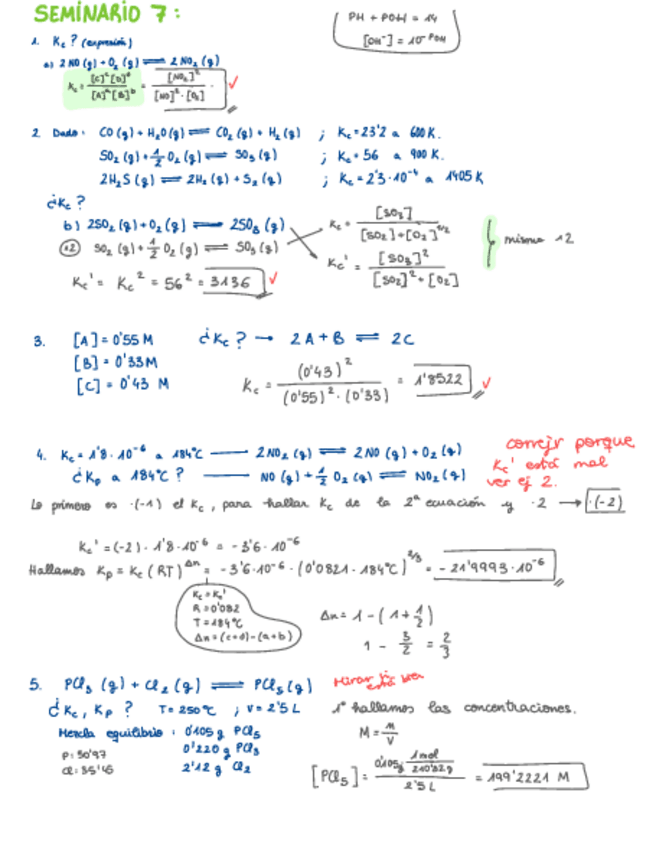 SEMINARIO 7:
PH + POH = 14
[OH⁻] = 10^-POH
1. Kc? (expresión)
a) 2 NO (g) + O₂ (g) ⇌ 2 NO₂ (g)
Kc = [C]^c [D]^d / [A]^a [B]^b = [NO₂]² / [NO]² · [O₂] ✓
2. Dado: CO (g) + H₂O (g) ⇌ CO₂ (g) + H₂ (g) ; Kc = 23'2 a 600 K.
SO₂ (g) + 1/2 O₂ (g) ⇌ SO₃ (g) ; Kc = 56 a 900 K.
2H₂S (g) ⇌ 2H₂ (g) + S₂ (g) ; Kc = 2'3·10⁻⁴ a 1405 K
¿Kc?
b) 2SO₂ (g) + O₂ (g) ⇌ 2SO₃ (g) Kc = [SO₃] / [SO₂] + [O₂]^1/2
·2 SO₂ (g) + 1/2 O₂ (g) ⇌ SO₃ (g) Kc' = [SO₃]² / [SO₂]² + [O₂] } mismo 12
Kc' = Kc² = 56² = 3136 ✓
3. [A] = 0'55 M ¿Kc? → 2A + B ⇌ 2C
[B] = 0'33 M
[C] = 0'43 M Kc = (0'43)² / (0'55)² · (0'33) = 1'8522 ✓
4. Kc = 1'8·10⁻⁶ a 184°C — 2NO₂ (g) ⇌ 2NO (g) + O₂ (g)
¿Kp a 184°C? — NO (g) + 1/2 O₂ (g) ⇌ NO₂ (g)
porque
Kc' está mal
ver ej 2.
Lo primero es ·(-1) el Kc, para hallar Kc de la 2ª ecuación y ·2 → ·(-2)
Kc' = (-2) · 1'8·10⁻⁶ = -3'6·10⁻⁶
Hallamos Kp = Kc (RT)^Δn = -3'6·10⁻⁶ · (0'0821 · 184°C)^2/3 = -21'9993·10⁻⁶
Kc = Kc'
R = 0'082
T = 184°C
Δn = (c+d) - (a+b)
Δn = 1 - (1 + 1/2)
1 - 3/2 = 2/3
5. PCl₃ (g) + Cl₂ (g) ⇌ PCl₅ (g) Mirar si está bien
¿Kc, Kp? T = 250°C ; V = 2'5 L 1º hallamos las concentraciones.
Mezcla equilibrio: 0'105 g PCl₅ M = n/V
P: 30'97 0'220 g PCl₃
Cl: 35'45 2'12 g Cl₂
[PCl₅] = 0'105g · 1mol/210'32g / 2'5 L = 199'2221 M